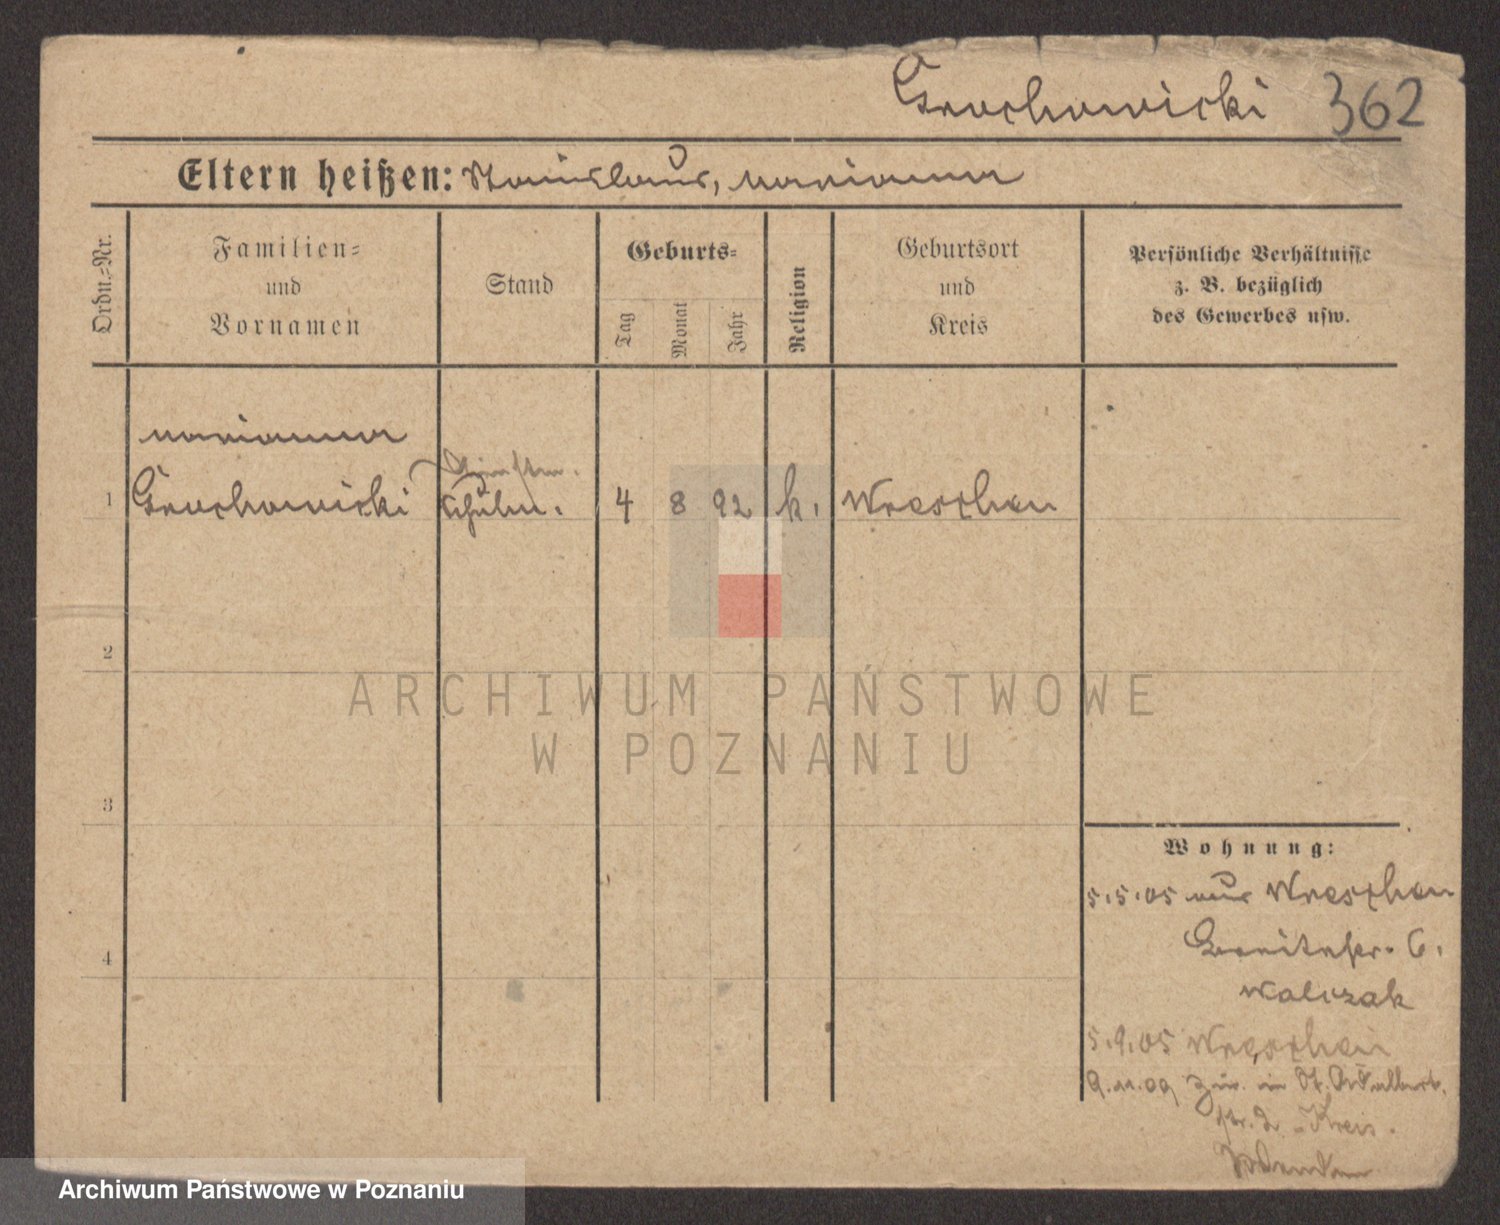 Grochowicki 362
Eltern heißen: Stanislaus, Marianna
Ordn.-Nr.
Familien-
und
Vornamen
Stand
Geburts-
Tag
Monat
Jahr
Religion
Geburtsort
und
Kreis
Persönliche Verhältnisse
z. B. bezüglich
des Gewerbes usw.
Marianna
1 Grochowicki Schüln. 4 8 92 k. Wreschen
2
3
4
Wohnung:
5.5.05 aus Wreschen
6.
Walczak
5.9.05 Wreschen
9.11.09 in St. Adalbert
Kreis
ARCHIWUM PAŃSTWOWE
W POZNANIU
Archiwum Państwowe w Poznaniu